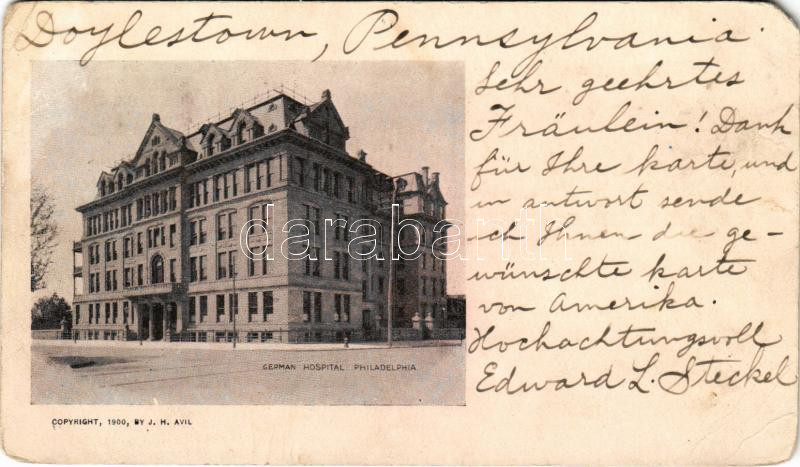 Doylestown, Pennsylvania.
Sehr geehrtes
Fräulein! Dank
für Ihre karte, und
in antwort sende
ich Ihnen die ge-
wünschte karte
von Amerika.
Hochachtungsvoll
Edward L. Steckel
darabanth.com
GERMAN HOSPITAL PHILADELPHIA
COPYRIGHT, 1900, BY J. H. AVIL